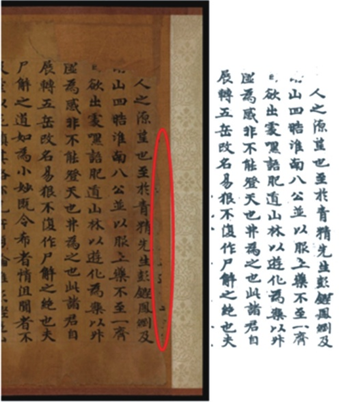 人之源也至於青精先生彭鏗鳳綱及
山四晧淮南八公並以服上藥不至一齊
欲出處嘿語肥遁山林以遊化為樂以升
虛為慼非不能登天也弗為之也此諸君自
展轉五岳改名易貌不復作尸解之絕也夫
尸解之道如為小妙既令希者情沮聞者不
人之源也至於青精先生彭鏗鳳綱及
山四晧淮南八公並以服上藥不至一齊
欲出處嘿語肥遁山林以遊化為樂以升
虛為慼非不能登天也弗為之也此諸君自
展轉五岳改名易貌不復作尸解之絕也夫